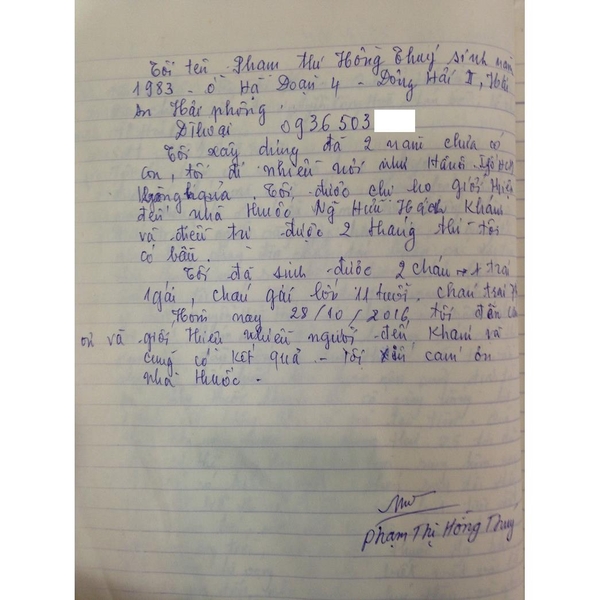 Tôi tên Phạm thị Hồng Thuý sinh năm
1983 - ở Hạ Đoạn 4 - Đông Hải II, Hải
An Hải phòng.
Đthoại 0936 503
Tôi xây dựng đã 2 năm chưa có
con, tôi đi nhiều nơi như Hà nội
không kquả. Tôi được chị ho giới thiệu
đến nhà thuốc Ng Hữu Hách Khám
và điều trị được 2 tháng thì tôi
có bầu.
Tôi đã sinh được 2 cháu → 1 trai
1 gái, cháu gái lớn 11 tuổi. cháu trai
Hôm nay 28/10/2016 tôi đến
ơn và giới thiệu nhiều người đến khám và
cũng có kết quả - Tôi xin cảm ơn
nhà thuốc.
Phạm Thị Hồng Thuý